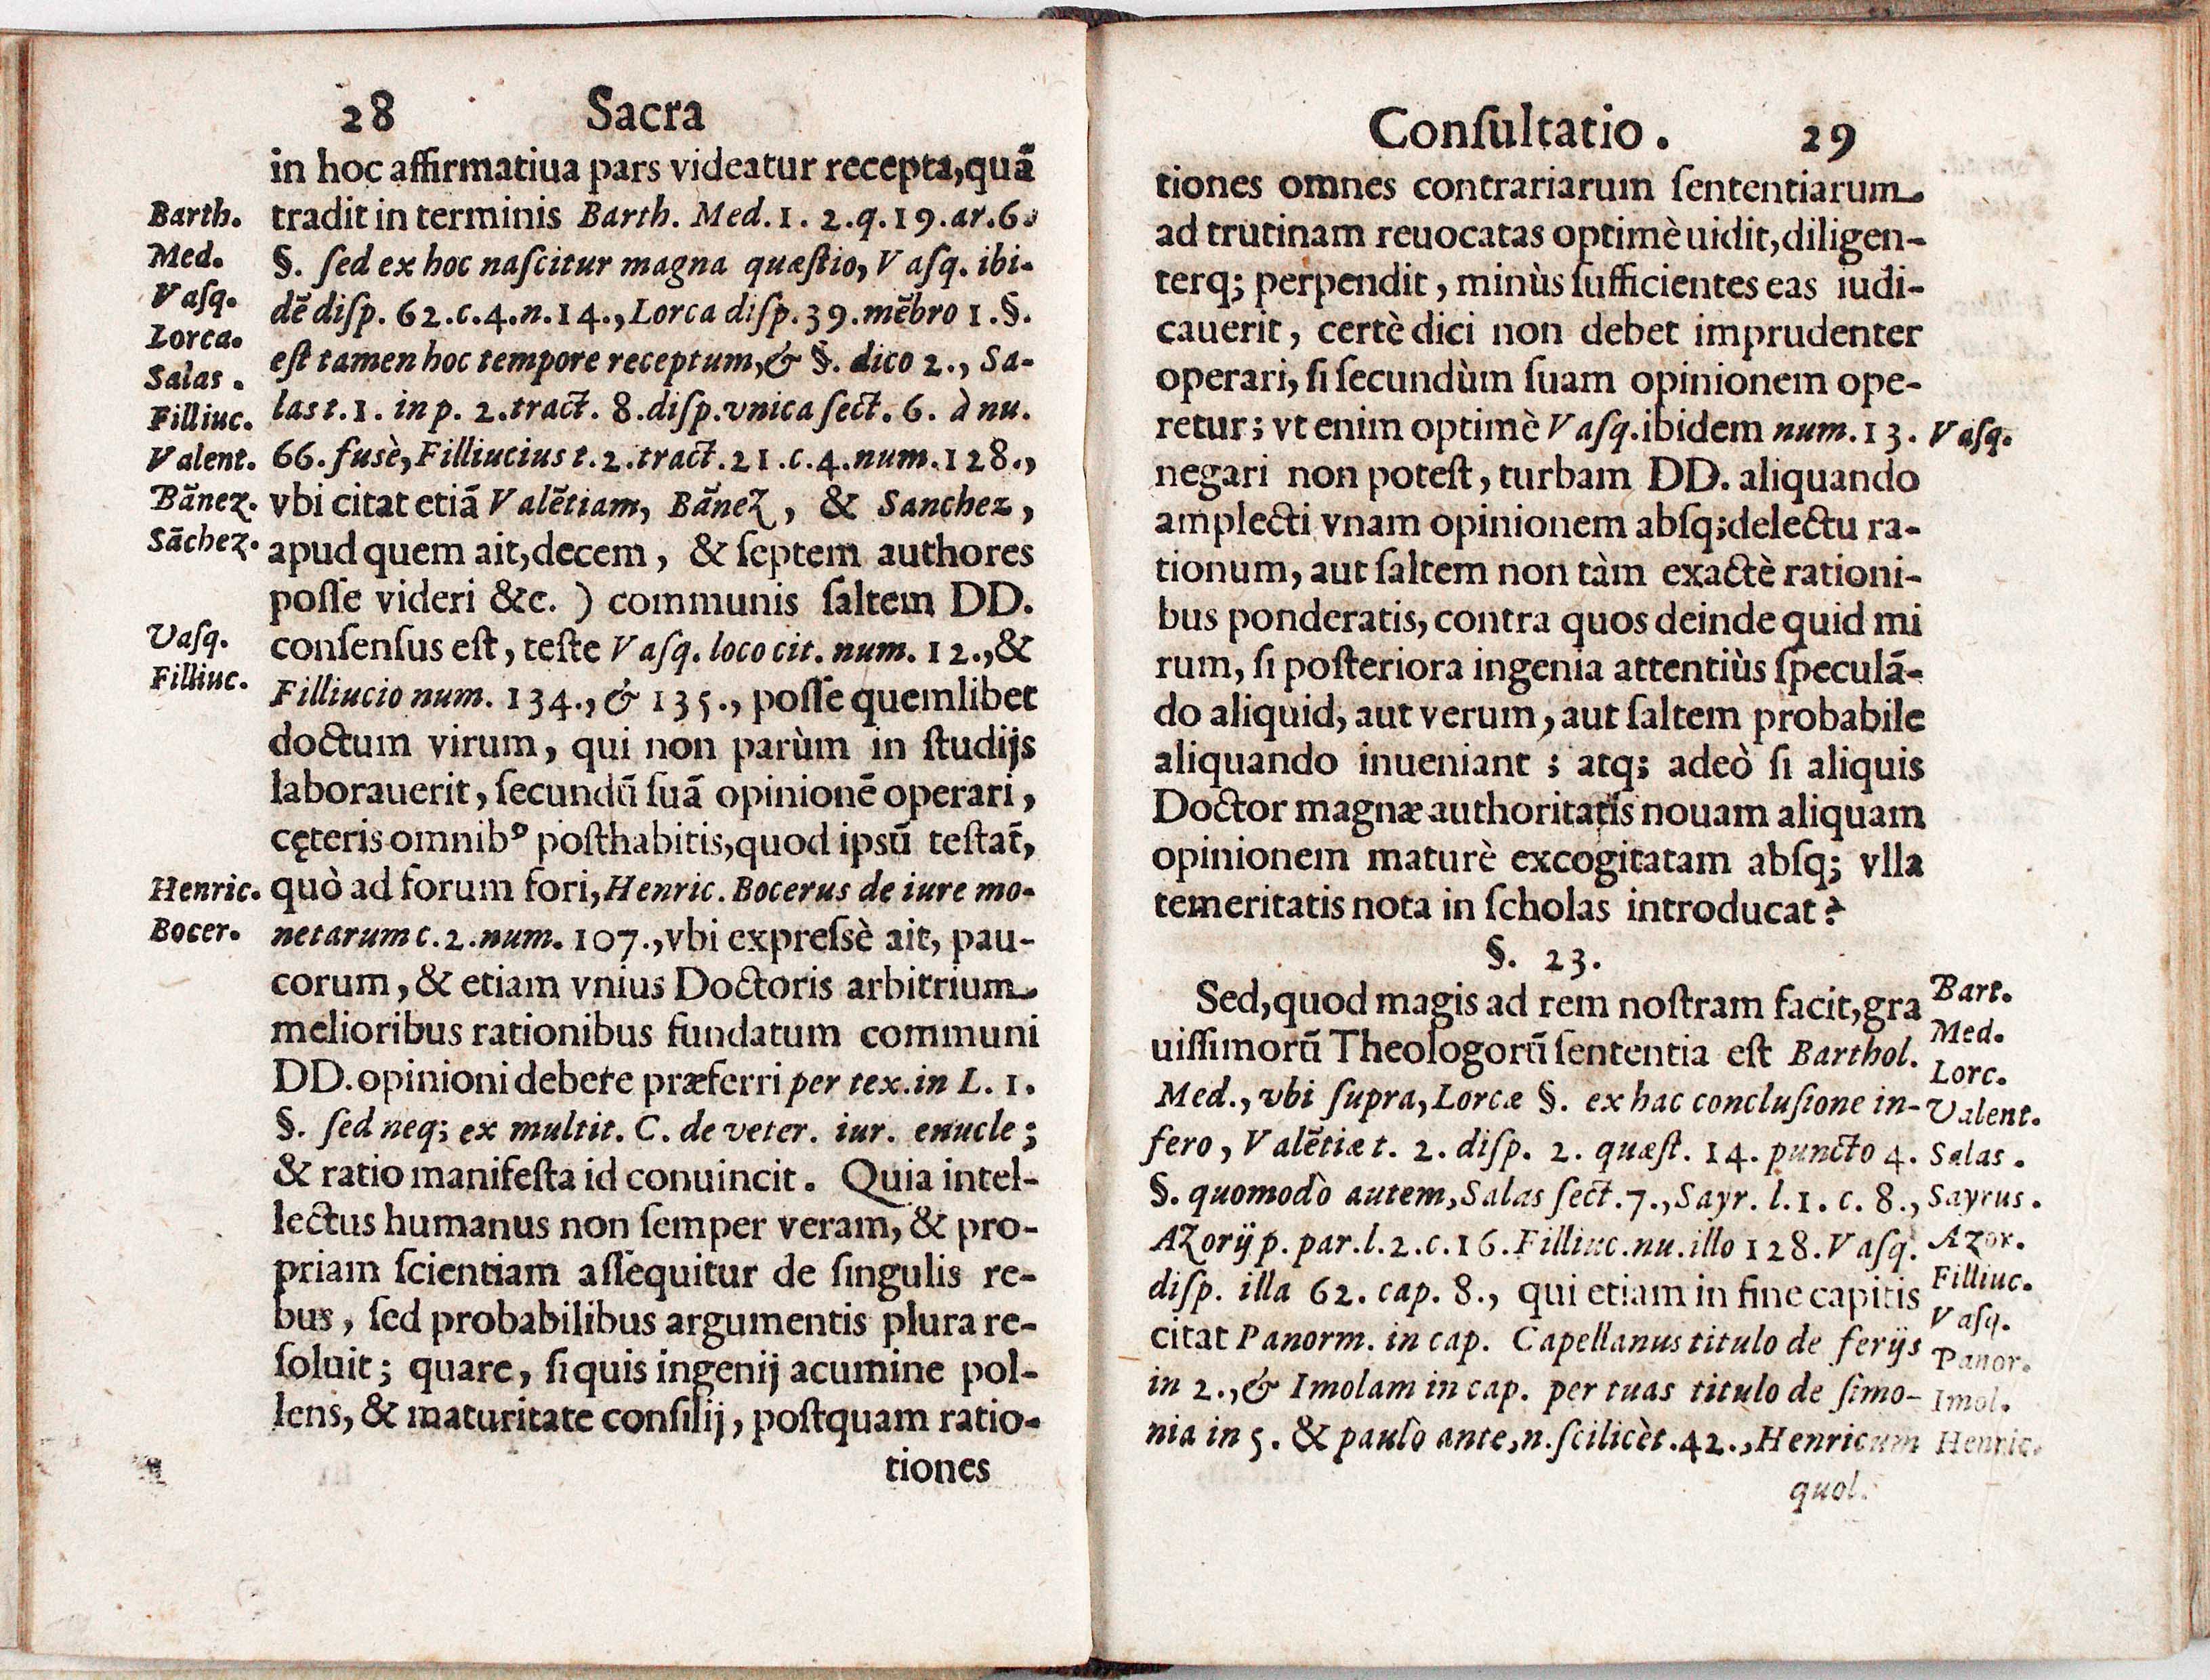 28 Sacra
in hoc affirmatiua pars videatur recepta,quã
tradit in terminis Barth. Med. 1. 2. q. 19. ar. 6.
§. ſed ex hoc naſcitur magna quæſtio, Vaſq. ibi-
dẽ diſp. 62. c. 4. n. 14., Lorca diſp. 39. mẽbro 1. §.
eſt tamen hoc tempore receptum, & §. dico 2., Sa-
las t. 1. in p. 2. tract. 8. diſp. vnica ſect. 6. à nu.
66. fusè, Filliucius t. 2. tract. 21. c. 4. num. 128.,
vbi citat etiã Valẽtiam, Bãnez, & Sanchez,
apud quem ait, decem, & ſeptem authores
poſſe videri &c. ) communis ſaltem DD.
conſenſus eſt, teſte Vaſq. loco cit. num. 12., &
Filliucio num. 134., & 135., poſſe quemlibet
doctum virum, qui non parùm in ſtudijs
laborauerit, ſecundũ ſuã opinionẽ operari,
cęteris omnibꝰ poſthabitis, quod ipsũ teſtat̃,
quò ad forum fori, Henric. Bocerus de iure mo-
netarum c. 2. num. 107., vbi expreſsè ait, pau-
corum, & etiam vnius Doctoris arbitrium
melioribus rationibus fundatum communi
DD. opinioni debere præferri per tex. in L. 1.
§. ſed neq; ex multit. C. de veter. iur. enucle;
& ratio manifeſta id conuincit. Quia intel-
lectus humanus non ſemper veram, & pro-
priam ſcientiam aſſequitur de ſingulis re-
bus, ſed probabilibus argumentis plura re-
ſoluit; quare, ſi quis ingenij acumine pol-
lens, & maturitate conſilij, poſtquam ratio-
tiones
Barth.
Med.
Vaſq.
Lorca.
Salas.
Filliuc.
Valent.
Bãnez.
Sãchez.
Vaſq.
Filliuc.
Henric.
Bocer.
Conſultatio. 29
tiones omnes contrariarum ſententiarum
ad trutinam reuocatas optimè uidit, diligen-
terq; perpendit, minùs ſufficientes eas iudi-
cauerit, certè dici non debet imprudenter
operari, ſi ſecundùm ſuam opinionem ope-
retur; vt enim optimè Vaſq. ibidem num. 13.
negari non poteſt, turbam DD. aliquando
amplecti vnam opinionem abſq; delectu ra-
tionum, aut ſaltem non tàm exactè rationi-
bus ponderatis, contra quos deinde quid mi
rum, ſi poſteriora ingenia attentiùs ſpeculã-
do aliquid, aut verum, aut ſaltem probabile
aliquando inueniant ; atq; adeò ſi aliquis
Doctor magnæ authoritatis nouam aliquam
opinionem maturè excogitatam abſq; vlla
temeritatis nota in ſcholas introducat?
§. 23.
Sed, quod magis ad rem noſtram facit, gra
uiſſimorũ Theologorũ ſententia eſt Barthol.
Med., vbi ſupra, Lorcæ §. ex hac concluſione in-
fero, Valẽtiæ t. 2. diſp. 2. quæſt. 14. puncto 4.
§. quomodò autem, Salas ſect. 7., Sayr. l. 1. c. 8.,
Azorij p. par. l. 2. c. 16. Filliuc. nu. illo 128. Vaſq.
diſp. illa 62. cap. 8., qui etiam in fine capitis
citat Panorm. in cap. Capellanus titulo de ferijs
in 2., & Imolam in cap. per tuas titulo de ſimo-
nia in 5. & paulò ante, n. ſcilicèt. 42., Henricum
quol.
Vaſq.
Bart.
Med.
Lorc.
Valent.
Salas.
Sayrus.
Azor.
Filliuc.
Vaſq.
Panor.
Imol.
Henric.